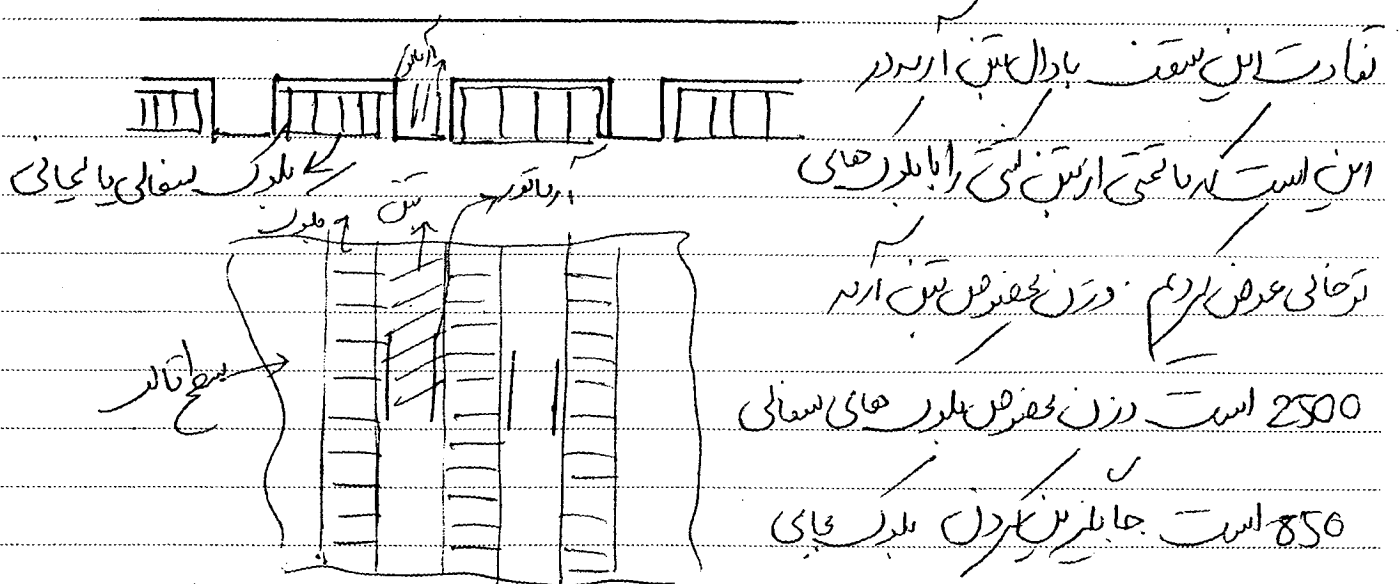 تفاوت این سقف با دال بتن آرمه در
این است که ما قسمتی از بتن کششی را با بلوک های
توخالی عوض کردیم. وزن مخصوص بتن آرمه
2500 است وزن مخصوص بلوک های سفالی
850 است جایگزین کردن بلوک بجای
بلوک سفالی یا
بتن
آرماتور
بلوک
سطح قالب